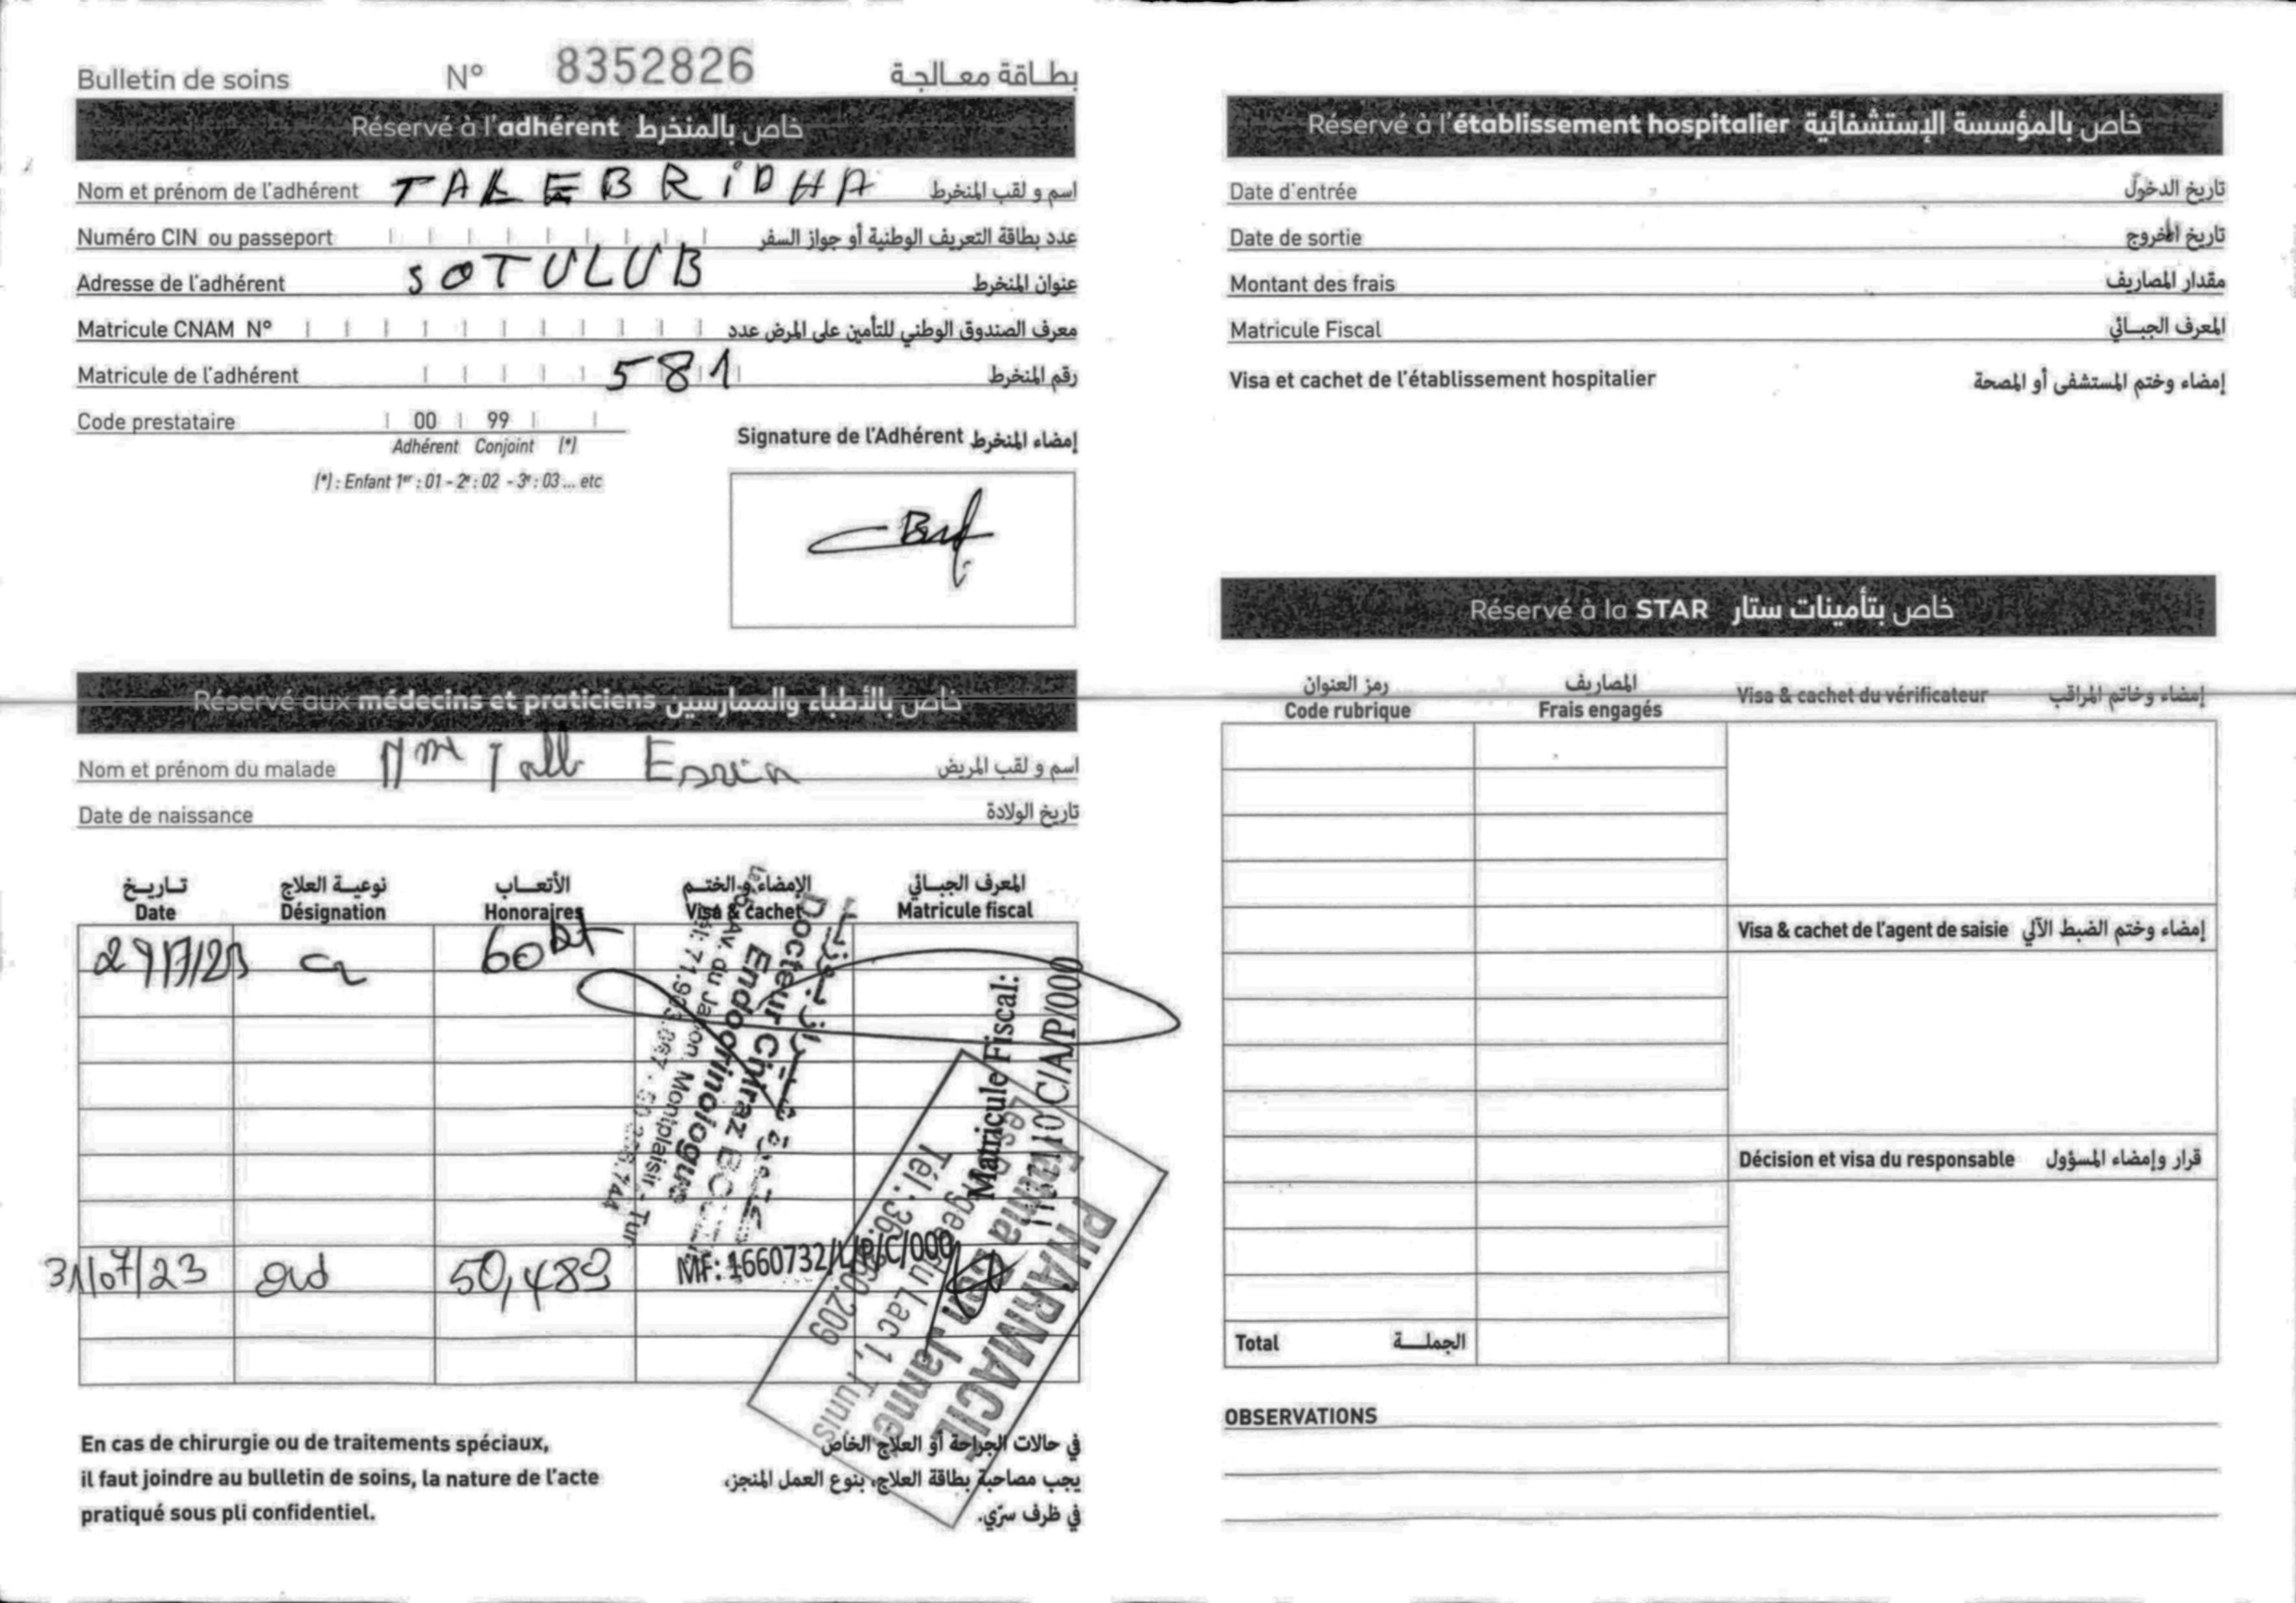 Bulletin de soins N° 8352826 بطاقة معالجة
Réservé à l'adhérent خاص بالمنخرط
Nom et prénom de l'adhérent TALEB RIDHA اسم و لقب المنخرط
Numéro CIN ou passeport عدد بطاقة التعريف الوطنية أو جواز السفر
Adresse de l'adhérent SOTULUB عنوان المنخرط
Matricule CNAM N° معرف الصندوق الوطني للتأمين على المرض عدد
Matricule de l'adhérent 581 رقم المنخرط
Code prestataire 00 99
Adhérent Conjoint (*)
(*) : Enfant 1er : 01 - 2e : 02 - 3e : 03 ... etc
Signature de l'Adhérent إمضاء المنخرط
Réservé aux médecins et praticiens خاص بالأطباء والممارسين
Nom et prénom du malade Mme اسم و لقب المريض
Date de naissance تاريخ الولادة
تاريخ نوعية العلاج الأتعاب الإمضاء والختم المعرف الجبائي
Date Désignation Honoraires Visa & cachet Matricule fiscal
29/7/23 60 Dt
Docteur Chiraz
Endocrinologue
Av. du Japon, Montplaisir - Tunis
Matricule Fiscal:
C/A/P/000
31/07/23 50,489 MF: 1660732/L/P/C/000
PHARMACIE
Jannet
Les Berges du Lac 1, Tunis
Tél.: 36.360.209
En cas de chirurgie ou de traitements spéciaux,
il faut joindre au bulletin de soins, la nature de l'acte
pratiqué sous pli confidentiel.
في حالات الجراحة أو العلاج الخاص
يجب مصاحبة بطاقة العلاج، بنوع العمل المنجز،
في ظرف سرّي.
Réservé à l'établissement hospitalier خاص بالمؤسسة الإستشفائية
Date d'entrée تاريخ الدخول
Date de sortie تاريخ الخروج
Montant des frais مقدار المصاريف
Matricule Fiscal المعرف الجبائي
Visa et cachet de l'établissement hospitalier إمضاء وختم المستشفى أو المصحة
Réservé à la STAR خاص بتأمينات ستار
رمز العنوان المصاريف
Code rubrique Frais engagés Visa & cachet du vérificateur إمضاء وخاتم المراقب
Visa & cachet de l'agent de saisie إمضاء وختم الضبط الآلي
Décision et visa du responsable قرار وإمضاء المسؤول
Total الجملة
OBSERVATIONS